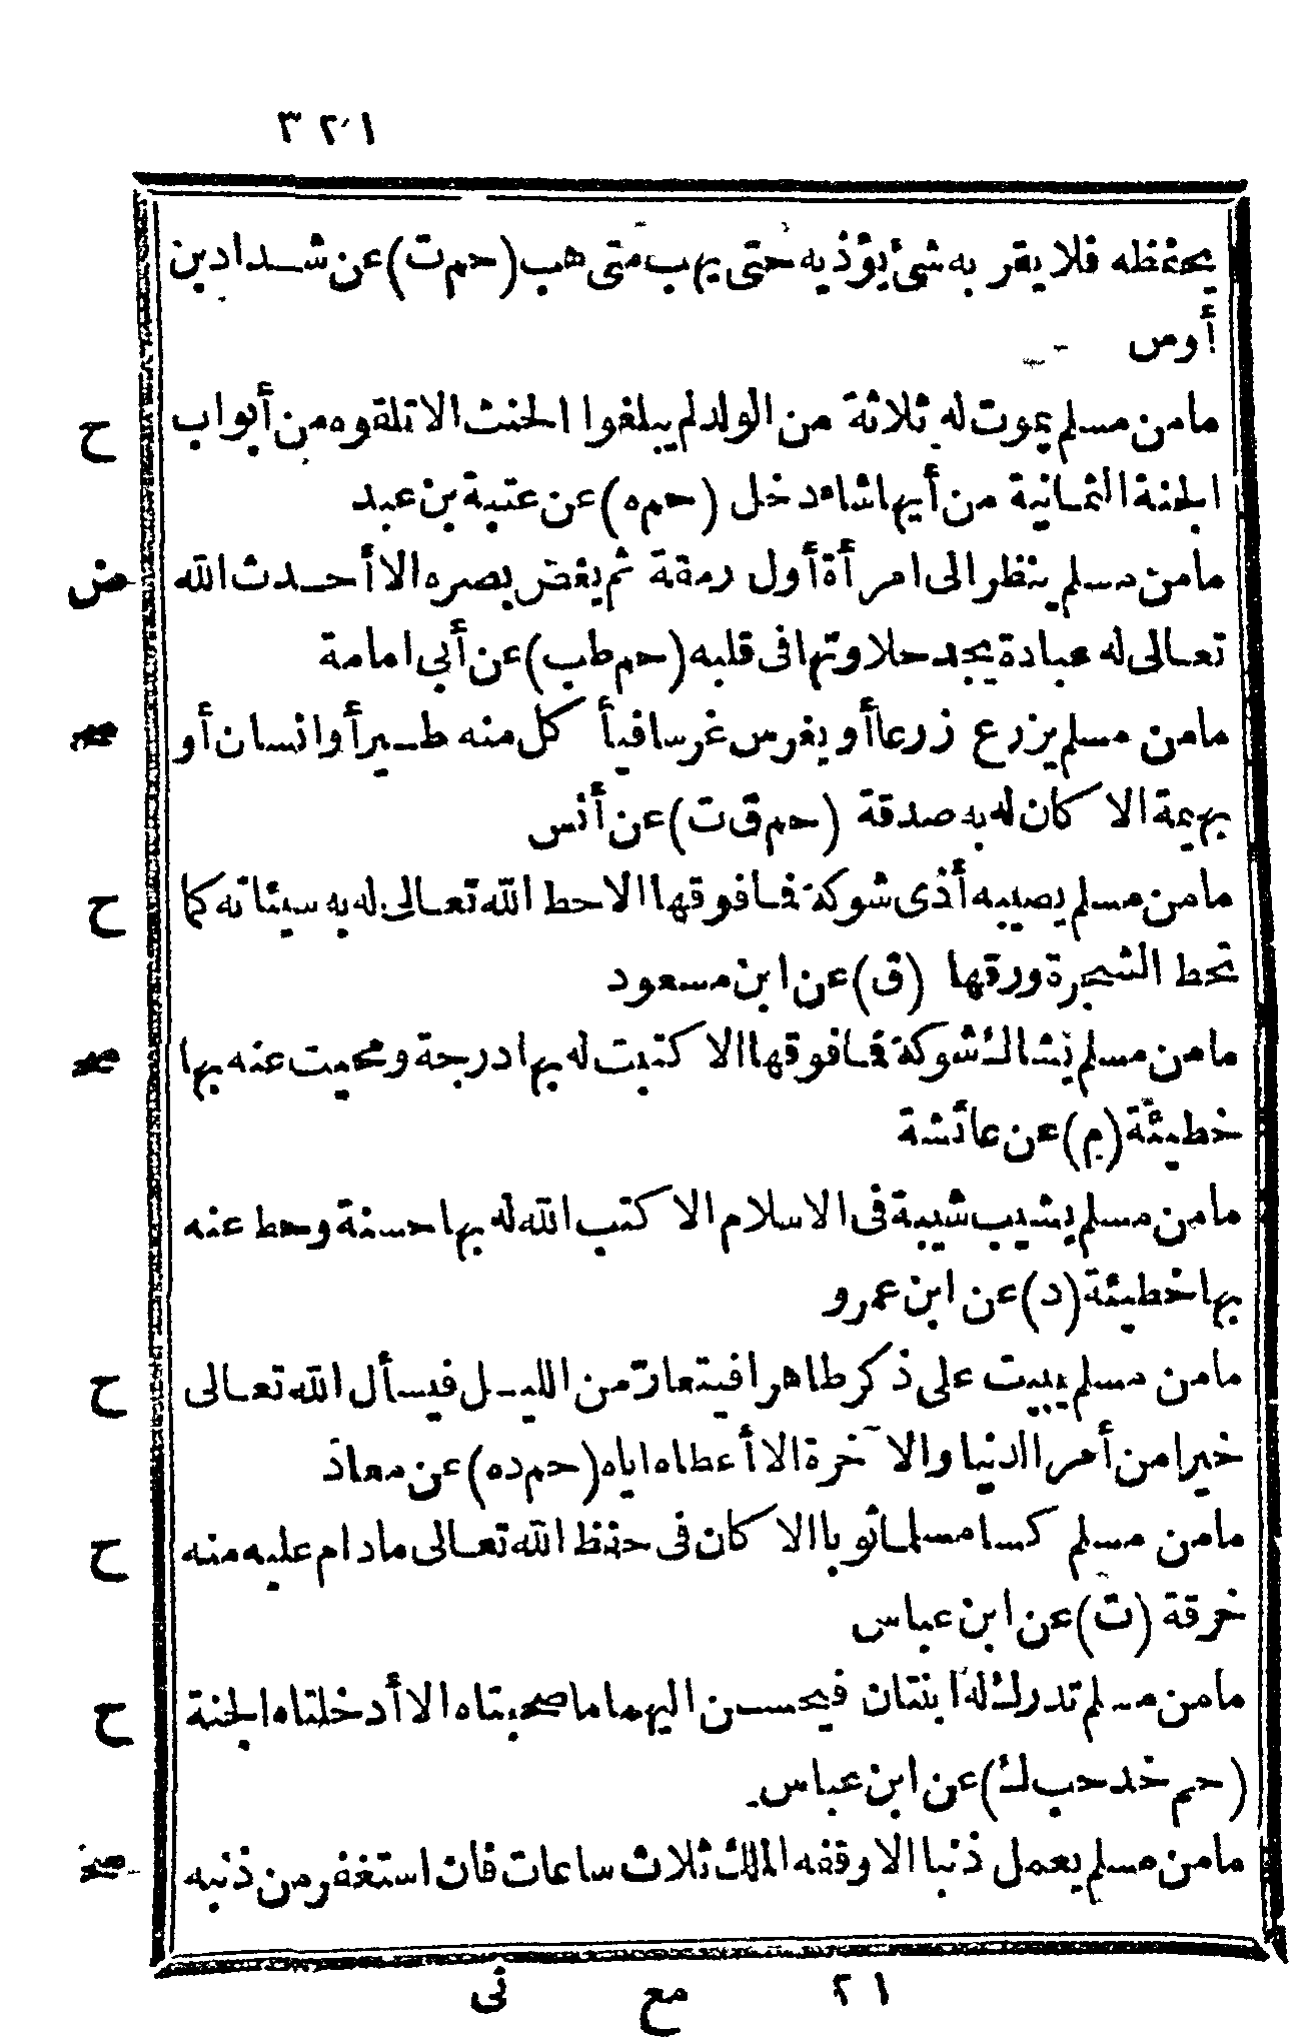 ٣٢١
يحفظه فلا يقربه شئ يؤذيه حتى يهب متى هب (حم ت) عن شداد بن
أوس
ما من مسلم يموت له ثلاثة من الولد لم يبلغوا الحنث الا تلقوه من أبواب
ح
الجنة الثمانية من أيها شاء دخل (حم ه) عن عتبة بن عبد
ما من مسلم ينظر الى امرأة أول رمقة ثم يغض بصره الا أحدث الله
ض
تعالى له عبادة يجد حلاوتها فى قلبه (حم طب) عن أبي امامة
ما من مسلم يزرع زرعا أو يغرس غرسا فيأكل منه طير أو انسان أو
صح
بهيمة الا كان له به صدقة (حم ق ت) عن أنس
ما من مسلم يصيبه أذى شوكة فما فوقها الا حط الله تعالى له به سيئاته كما
ح
تحط الشجرة ورقها (ق) عن ابن مسعود
ما من مسلم يشاك شوكة فما فوقها الا كتبت له بها درجة ومحيت عنه بها
صح
خطيئة (م) عن عائشة
ما من مسلم يشيب شيبة فى الاسلام الا كتب الله له بها حسنة وحط عنه
بها خطيئة (د) عن ابن عمرو
ما من مسلم يبيت على ذكر طاهرا فيتعار من الليل فيسأل الله تعالى
ح
خيرا من أمر الدنيا والآخرة الا أعطاه اياه (حم د ه) عن معاذ
ما من مسلم كسا مسلما ثوبا الا كان فى حفظ الله تعالى ما دام عليه منه
ح
خرقة (ت) عن ابن عباس
ما من مسلم تدرك له ابنتان فيحسن اليهما ما صحبتاه الا أدخلتاه الجنة
ح
(حم خد حب ك) عن ابن عباس
ما من مسلم يعمل ذنبا الا وقفه الملك ثلاث ساعات فان استغفر من ذنبه
صح
٢١ مع نى